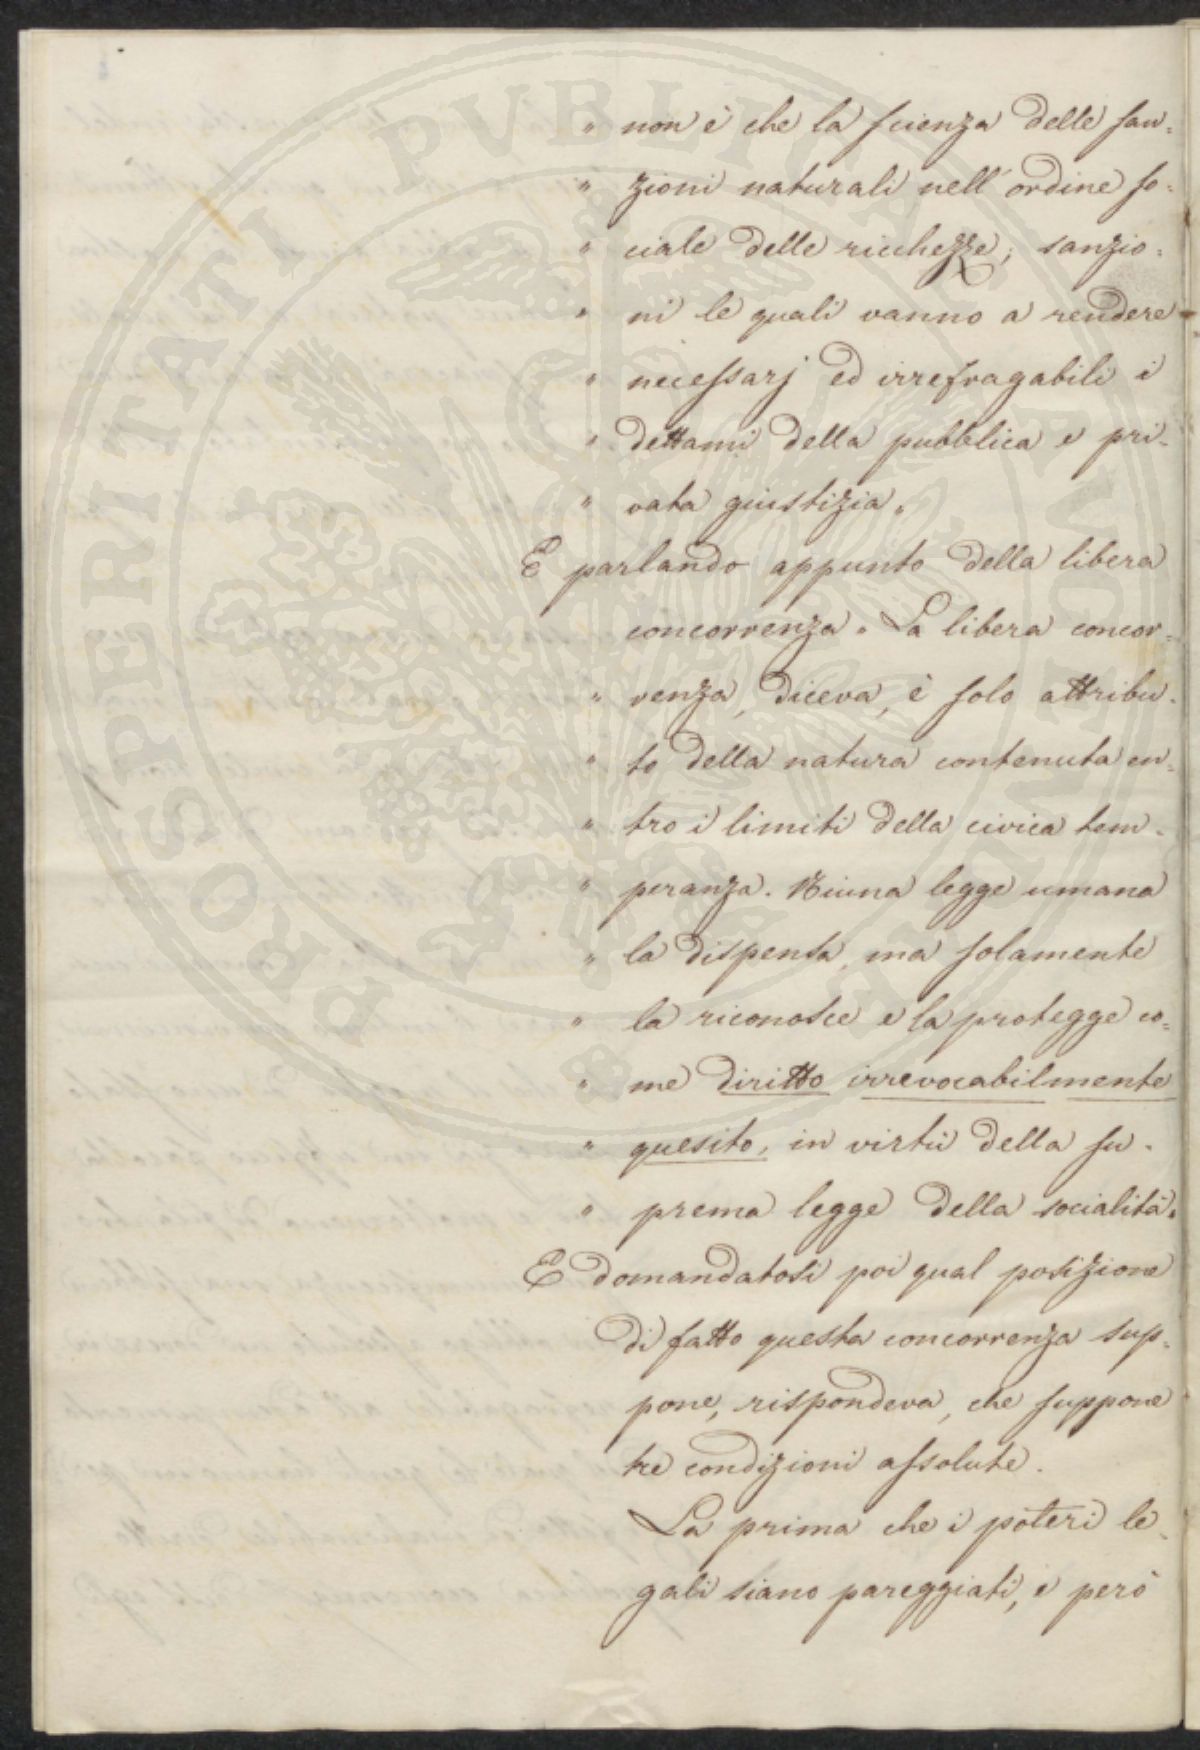 " non è che la scienza delle san=
" zioni naturali nell'ordine so=
" ciale delle ricchezze; sanzio=
" ni le quali vanno a rendere
" necessarj ed irrefragabili i
" dettami della pubblica e pri=
" vata giustizia.
E parlando appunto della libera
concorrenza " La libera concor=
" renza, diceva, è solo attribu=
" to della natura contenuta en=
" tro i limiti della civica tem=
" peranza. Niuna legge umana
" la dispensa, ma solamente
" la riconosce e la protegge co=
" me diritto irrevocabilmente
" quesito, in virtù della su=
" prema legge della socialità.
E domandatosi poi qual posizione
di fatto questa concorrenza sup=
pone, rispondeva, che suppone
tre condizioni assolute.
La prima che i poteri le=
gali siano pareggiati, e però
PROSPERITATI PVBLICAE AVGENDAE